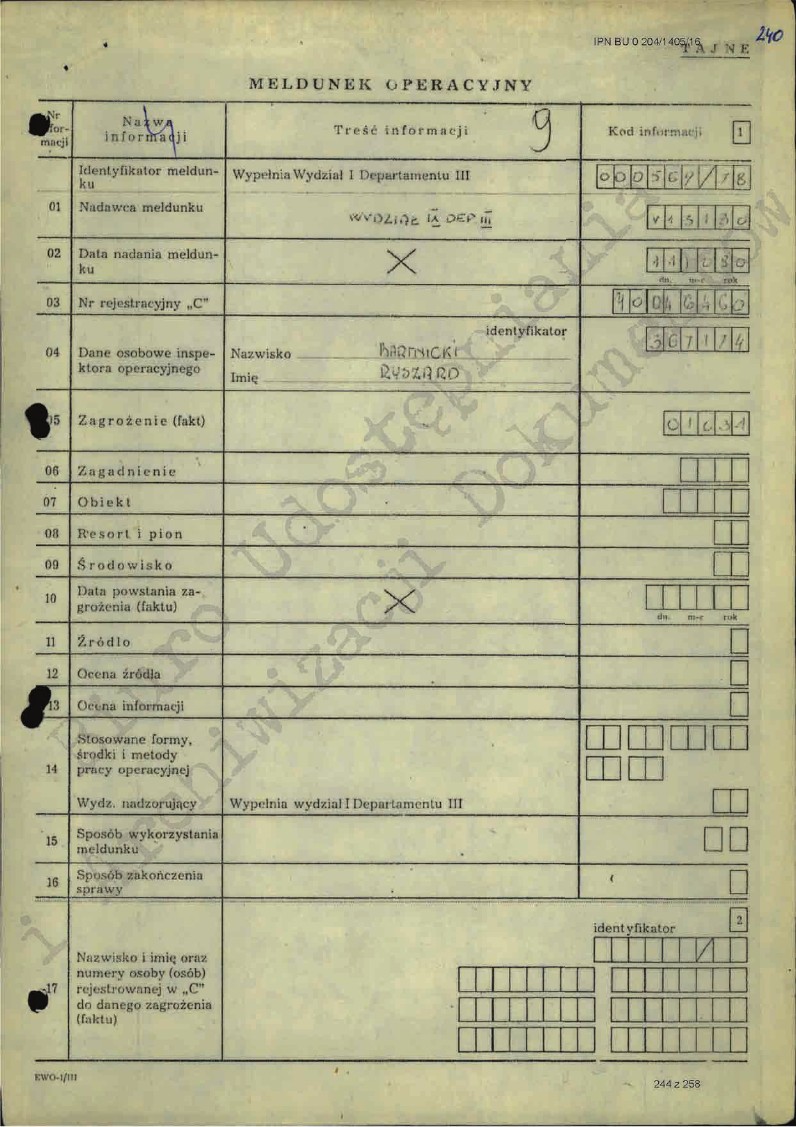 IPN BU 0 204/1405/16
240
TAJNE
MELDUNEK OPERACYJNY
Nr infor-macji
Nazwa informacji
Treść informacji
9
Kod informacji
1
Identyfikator meldun-
ku
Wypełnia Wydział I Departamentu III
000564/78
01 Nadawca meldunku
WYDZIAŁ IX DEP III
V13130
02 Data nadania meldun-
ku
X
dn. m-c rok
03 Nr rejestracyjny „C”
04 Dane osobowe inspe-
ktora operacyjnego
identyfikator
Nazwisko
Imię RYSZARD
367174
05 Zagrożenie (fakt)
06 Zagadnienie
07 Obiekt
08 Resort i pion
09 Środowisko
10 Data powstania za-
grożenia (faktu)
X
dn. m-c rok
11 Źródło
12 Ocena źródła
13 Ocena informacji
14 Stosowane formy,
środki i metody
pracy operacyjnej
Wydz. nadzorujący
Wypełnia wydział I Departamentu III
15 Sposób wykorzystania
meldunku
16 Sposób zakończenia
sprawy
2
identyfikator
17 Nazwisko i imię oraz
numery osoby (osób)
rejestrowanej w „C”
do danego zagrożenia
(faktu)
EWO-1/III
244 z 258
Biuro Udostępniania
i Archiwizacji Dokumentów